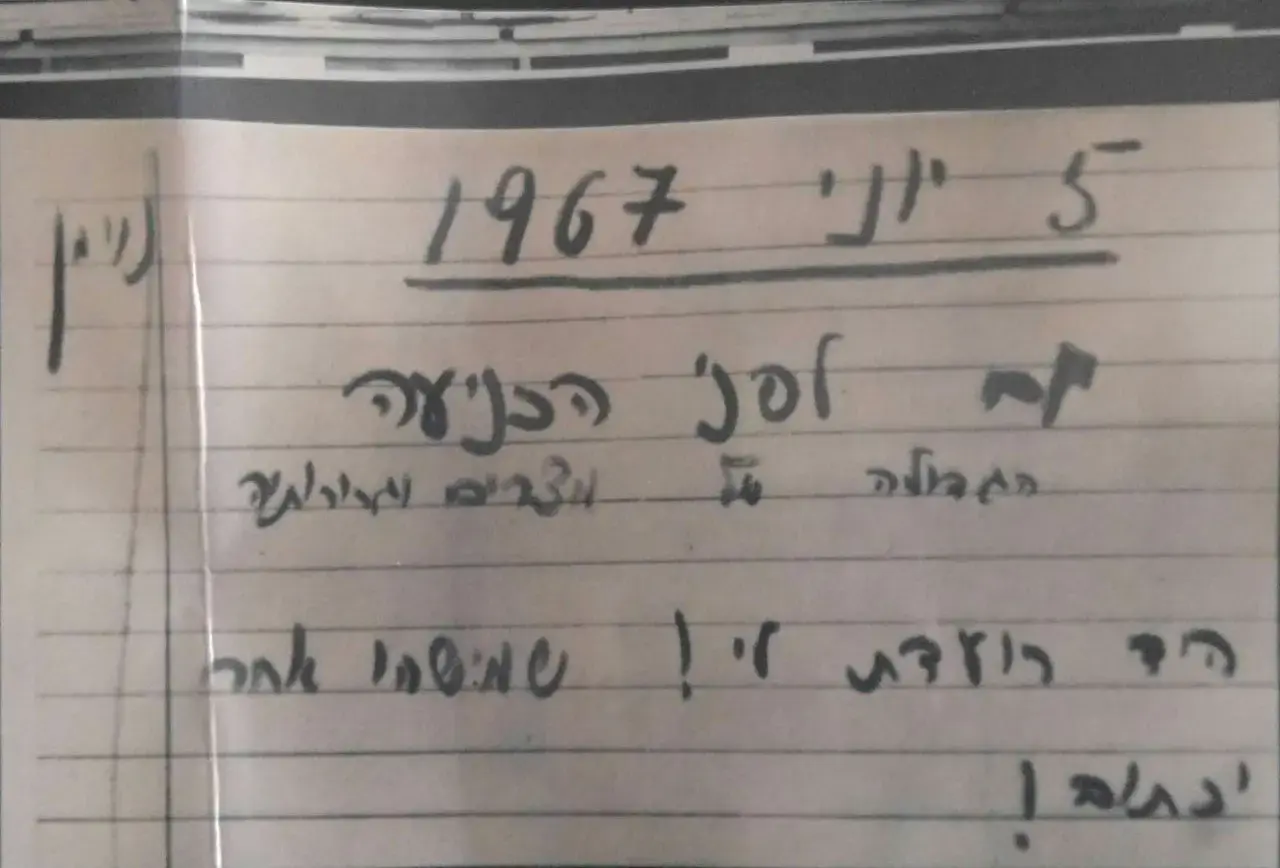 5 יוני 1967
יום לפני הכניעה
הגדולה של מצרים וגרורותיה
היד רועדת לי! שמישהו אחר
יכתוב!